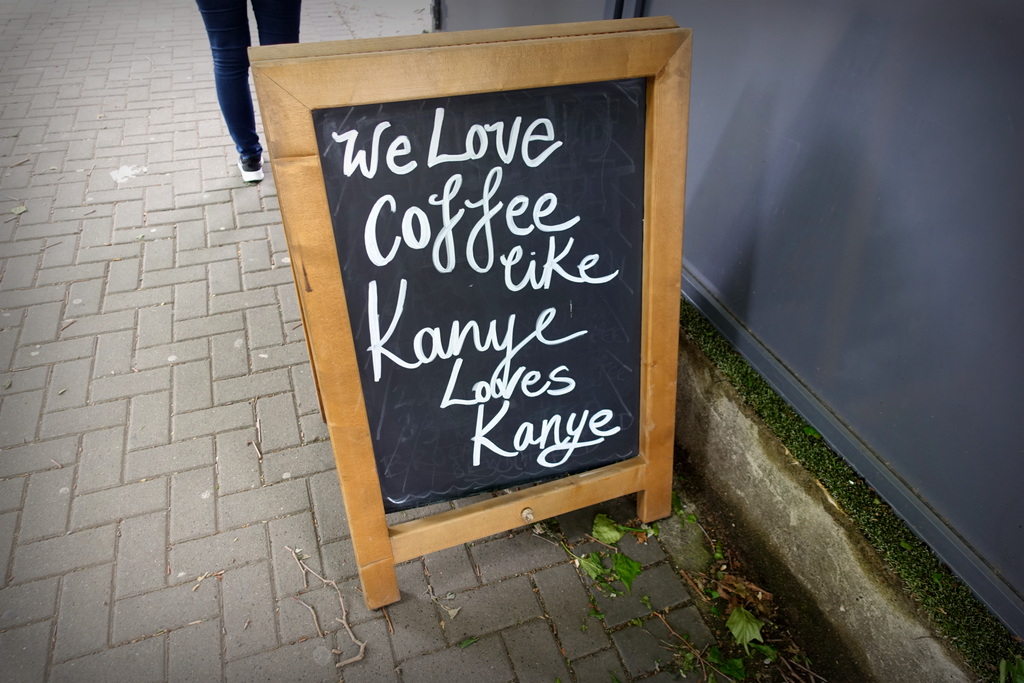 We Love
Coffee
like
Kanye
Loves
Kanye